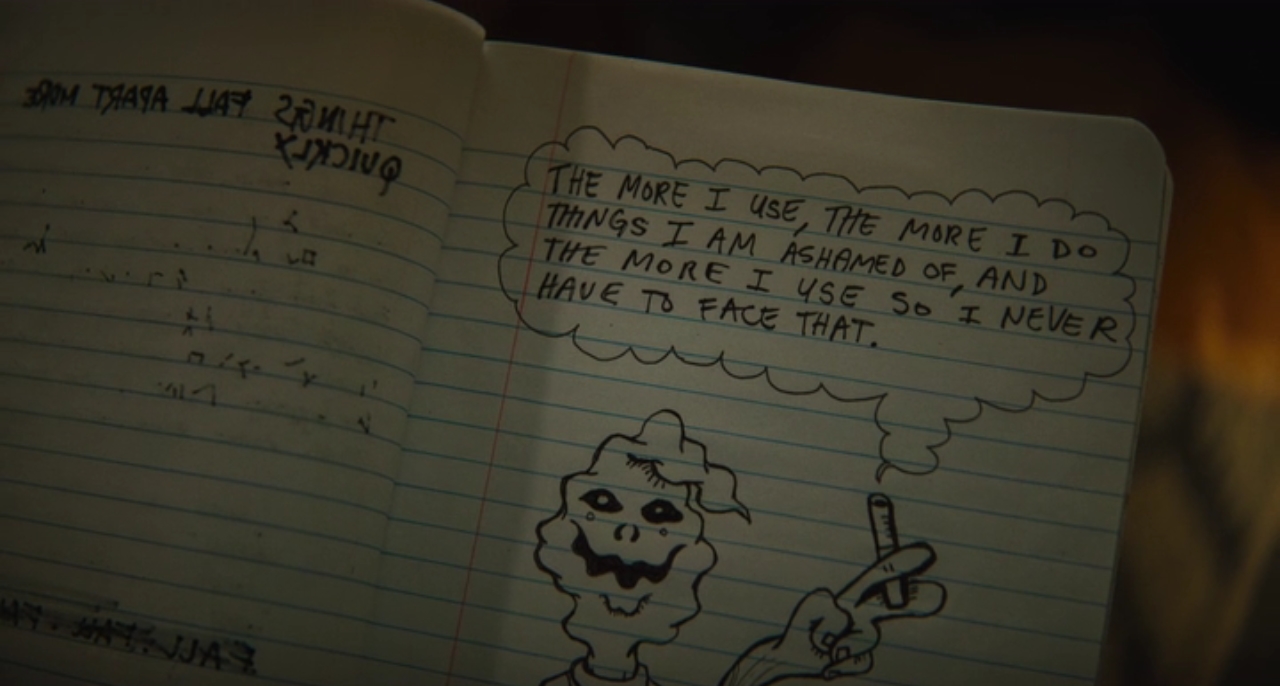 THINGS FALL APART MORE
QUICKLY
FALL
THE MORE I USE, THE MORE I DO
THINGS I AM ASHAMED OF, AND
THE MORE I USE SO I NEVER
HAVE TO FACE THAT.